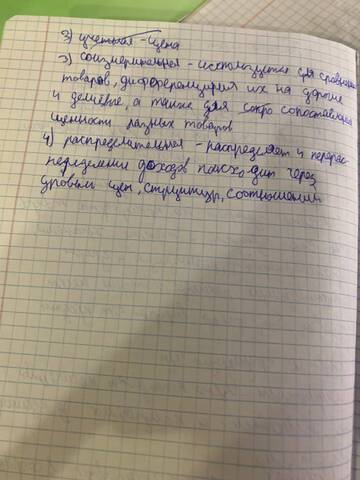 3) учетная - цена
3) соизмерительная - используется для сравнения
товаров, дифференцируя их на дорогие
и дешёвые, а также для сопоставления
ценности разных товаров
4) распределительная - распределяет и перерас
пределении доходов происходит через
уровень цен, структур, соотношений